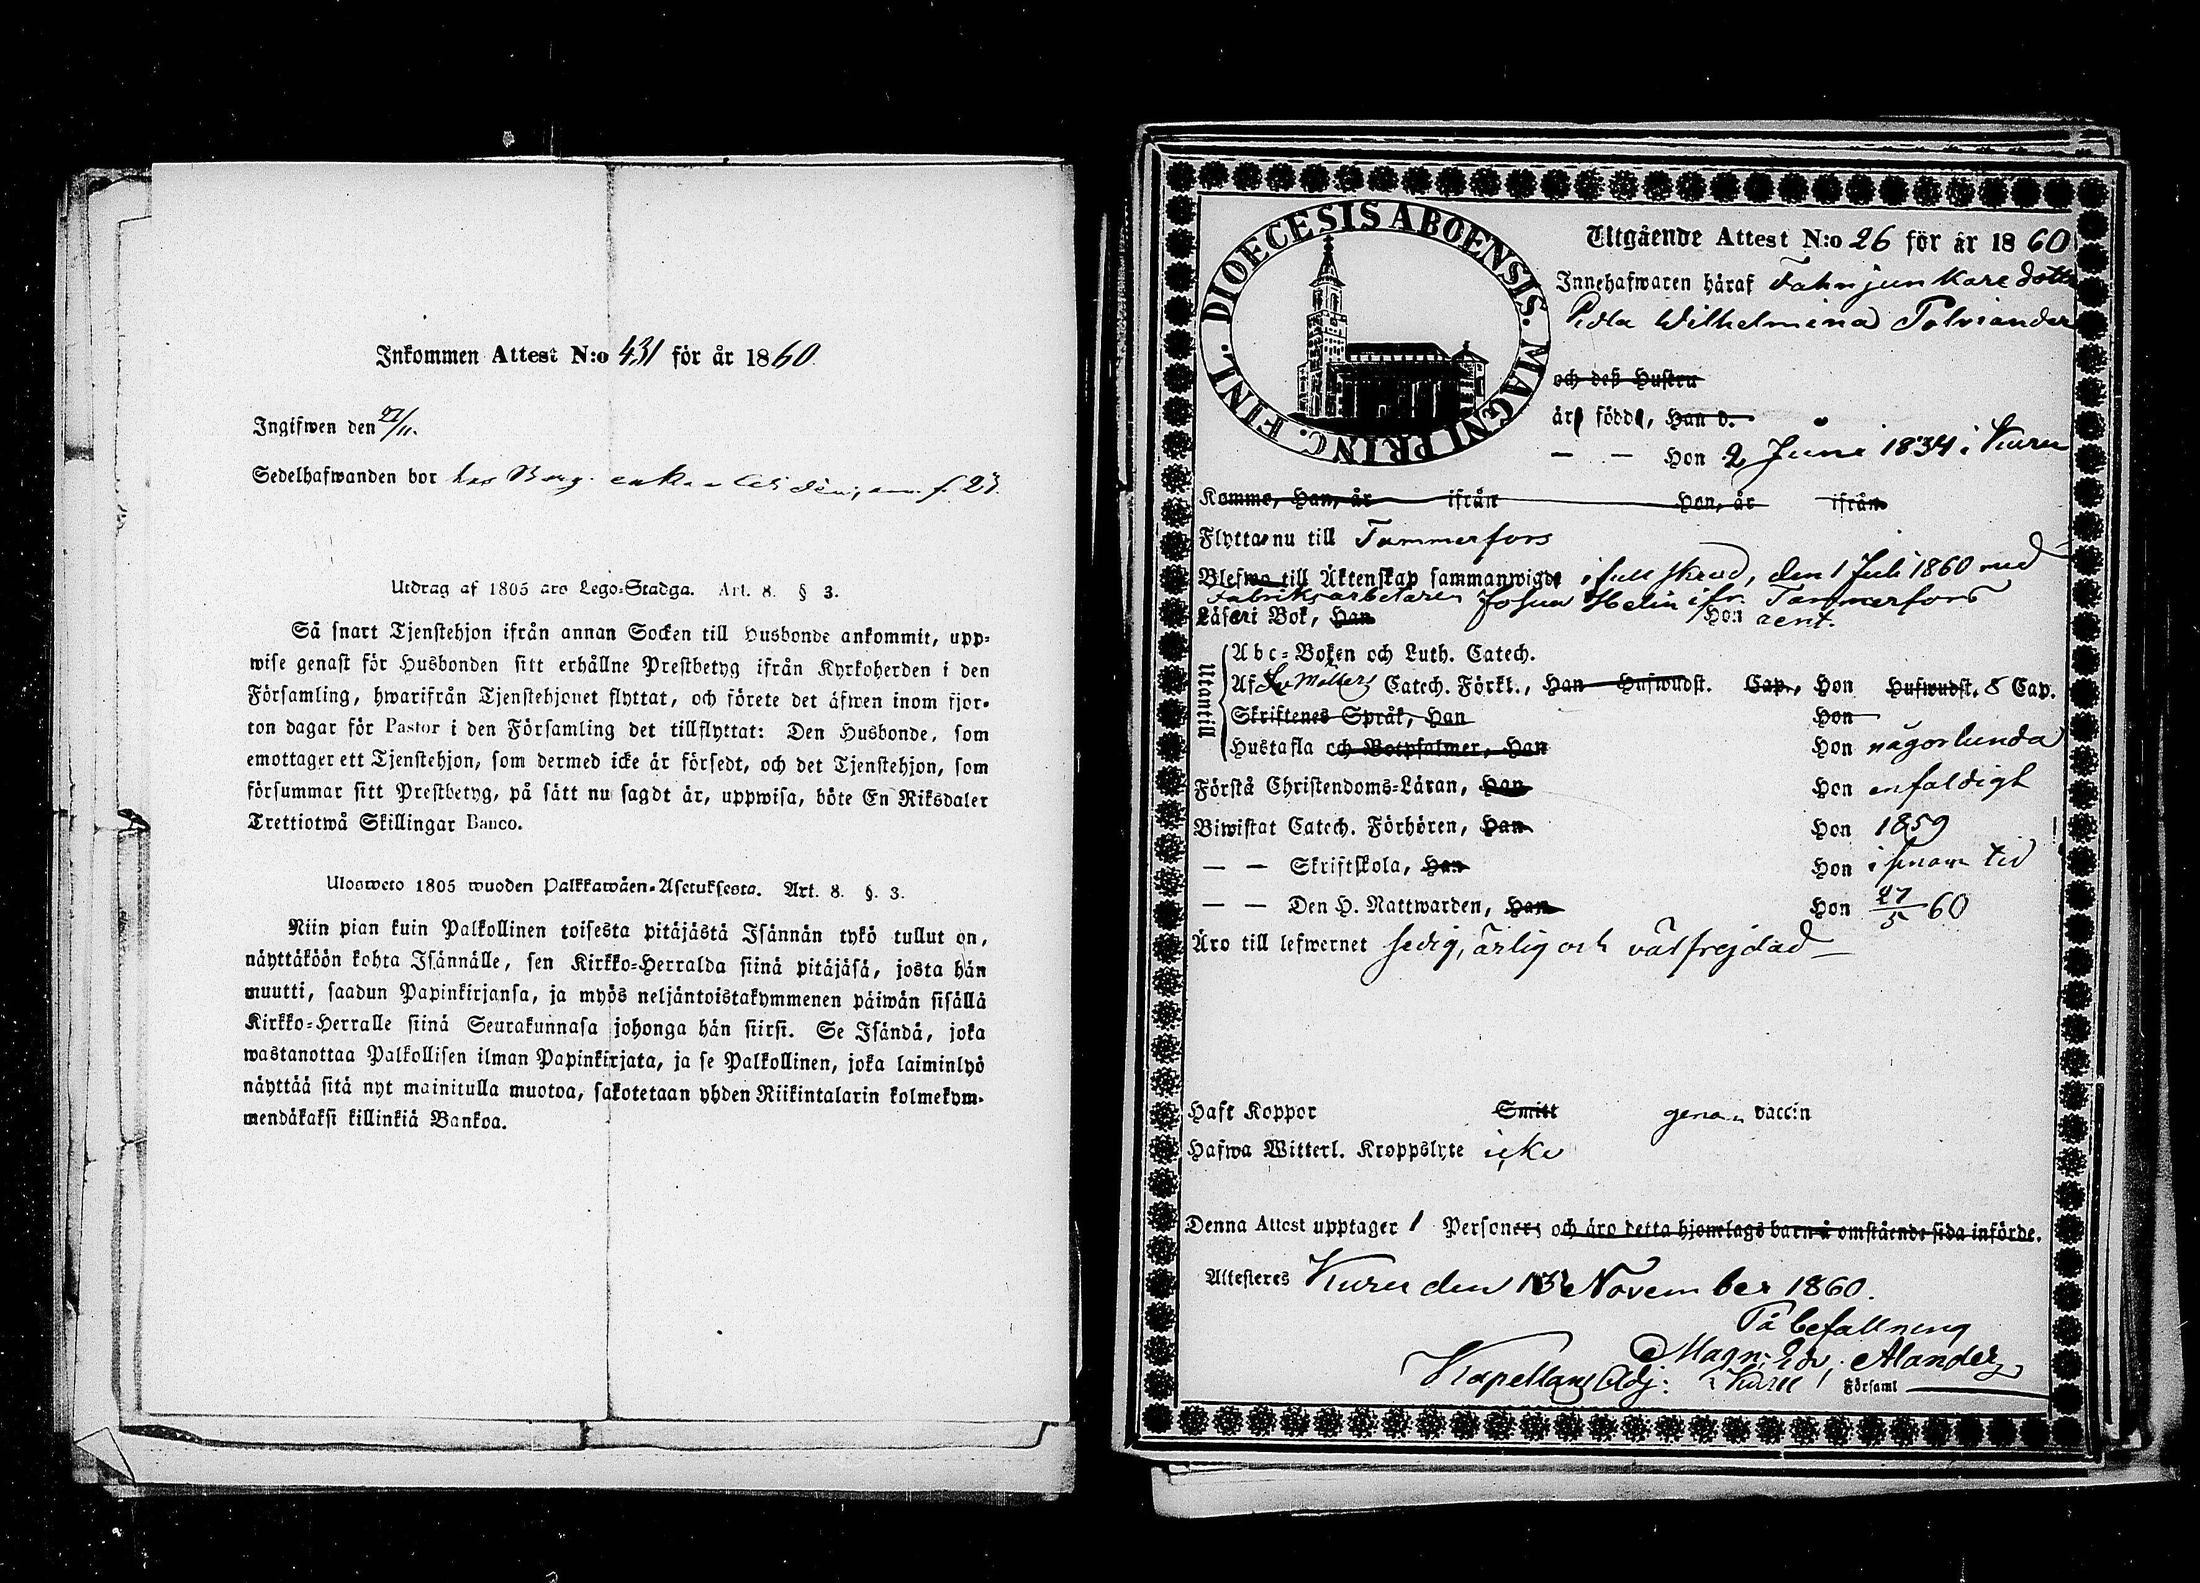 Inkommen Attest N:o 431 för år 1860.
Ingifwen den 27/11.
Sedelhafwanden bor hos f. 23.
Utdrag af 1805 års Lego-Stadga. Art. 8. § 3.
Så snart Tjenstehjon ifrån annan Socken till Husbonde ankommit, upp-
wise genast för Husbonden sitt erhållne Prestbetyg ifrån Kyrkoherden i den
Församling, hwarifrån Tjenstehjonet flyttat, och förete det äfwen inom fjor-
ton dagar för Pastor i den Församling det tillflyttat: Den Husbonde, som
emottager ett Tjenstehjon, som dermed icke är försedt, och det Tjenstehjon, som
försummar sitt Prestbetyg, på sätt nu sagdt är, uppwisa, böte En Riksdaler
Trettiotwå Skillingar Banco.
Ulosweto 1805 wuoden Palkkawäen-Asetuksesta. Art. 8. §. 3.
Niin pian kuin Palkollinen toisesta pitäjästä Isännän tykö tullut on,
näyttäköön kohta Isännälle, sen Kirkko-Herralda siinä pitäjäsä, josta hän
muutti, saadun Papinkirjansa, ja myös neljäntoistakymmenen päiwän sisällä
Kirkko-Herralle siinä Seurakunnasa johonga hän siirsi. Se Isändä, joka
wastanottaa Palkollisen ilman Papinkirjata, ja se Palkollinen, joka laiminlyö
näyttää sitä nyt mainitulla muotoa, sakotetaan yhden Riikintalarin kolmekym-
mendäkaksi killinkiä Bankoa.
DIOECESIS ABOENSIS. MAGNI PRINC. FINL.
Utgående Attest N:o 26 för år 1860
Innehafwaren häraf Fahnjunkare dottr
Wilhelmina Polviander
och deß Hustru
är född, Han d.
— — Hon 2 Juni 1834 i Kuru
Komme, Han, år ifrån Hon, år ifrån
Flytta nu till Tammerfors
Blefwo till Äktenskap sammanwigde i full skrud, den 1 Juli 1860 med
Fabriksarbetaren Josua Helin ifr. Tammerfors
Läser i Bok, Han Hon rent.
Utantill
Abc-Boken och Luth. Catech.
Af Catech. Förkl., Han Hufwudst. Cap., Hon Hufwudst. 8 Cap.
Skriftenes Språk, Han Hon
Hustafla och Botpsalmer, Han Hon någorlunda
Förstå Christendoms-Läran, Han Hon enfaldigt
Biwistat Catech. Förhören, Han Hon 1859
— — Skriftskola, Han Hon i sinom tid
— — Den H. Nattwarden, Han Hon 27/5 60
Äro till lefwernet sedig, ärlig och välfrejdad
Haft Koppor Smitt genom vaccin
Hafwa Witterl. Kroppslyte icke
Denna Attest upptager 1 Personer, och äro detta hjonelags barn å omstående sida införde.
Attesteres Kuru den 13 November 1860.
På befallning
Magn. Ed. Alander
Kapellans Adj. i Kuru Församl